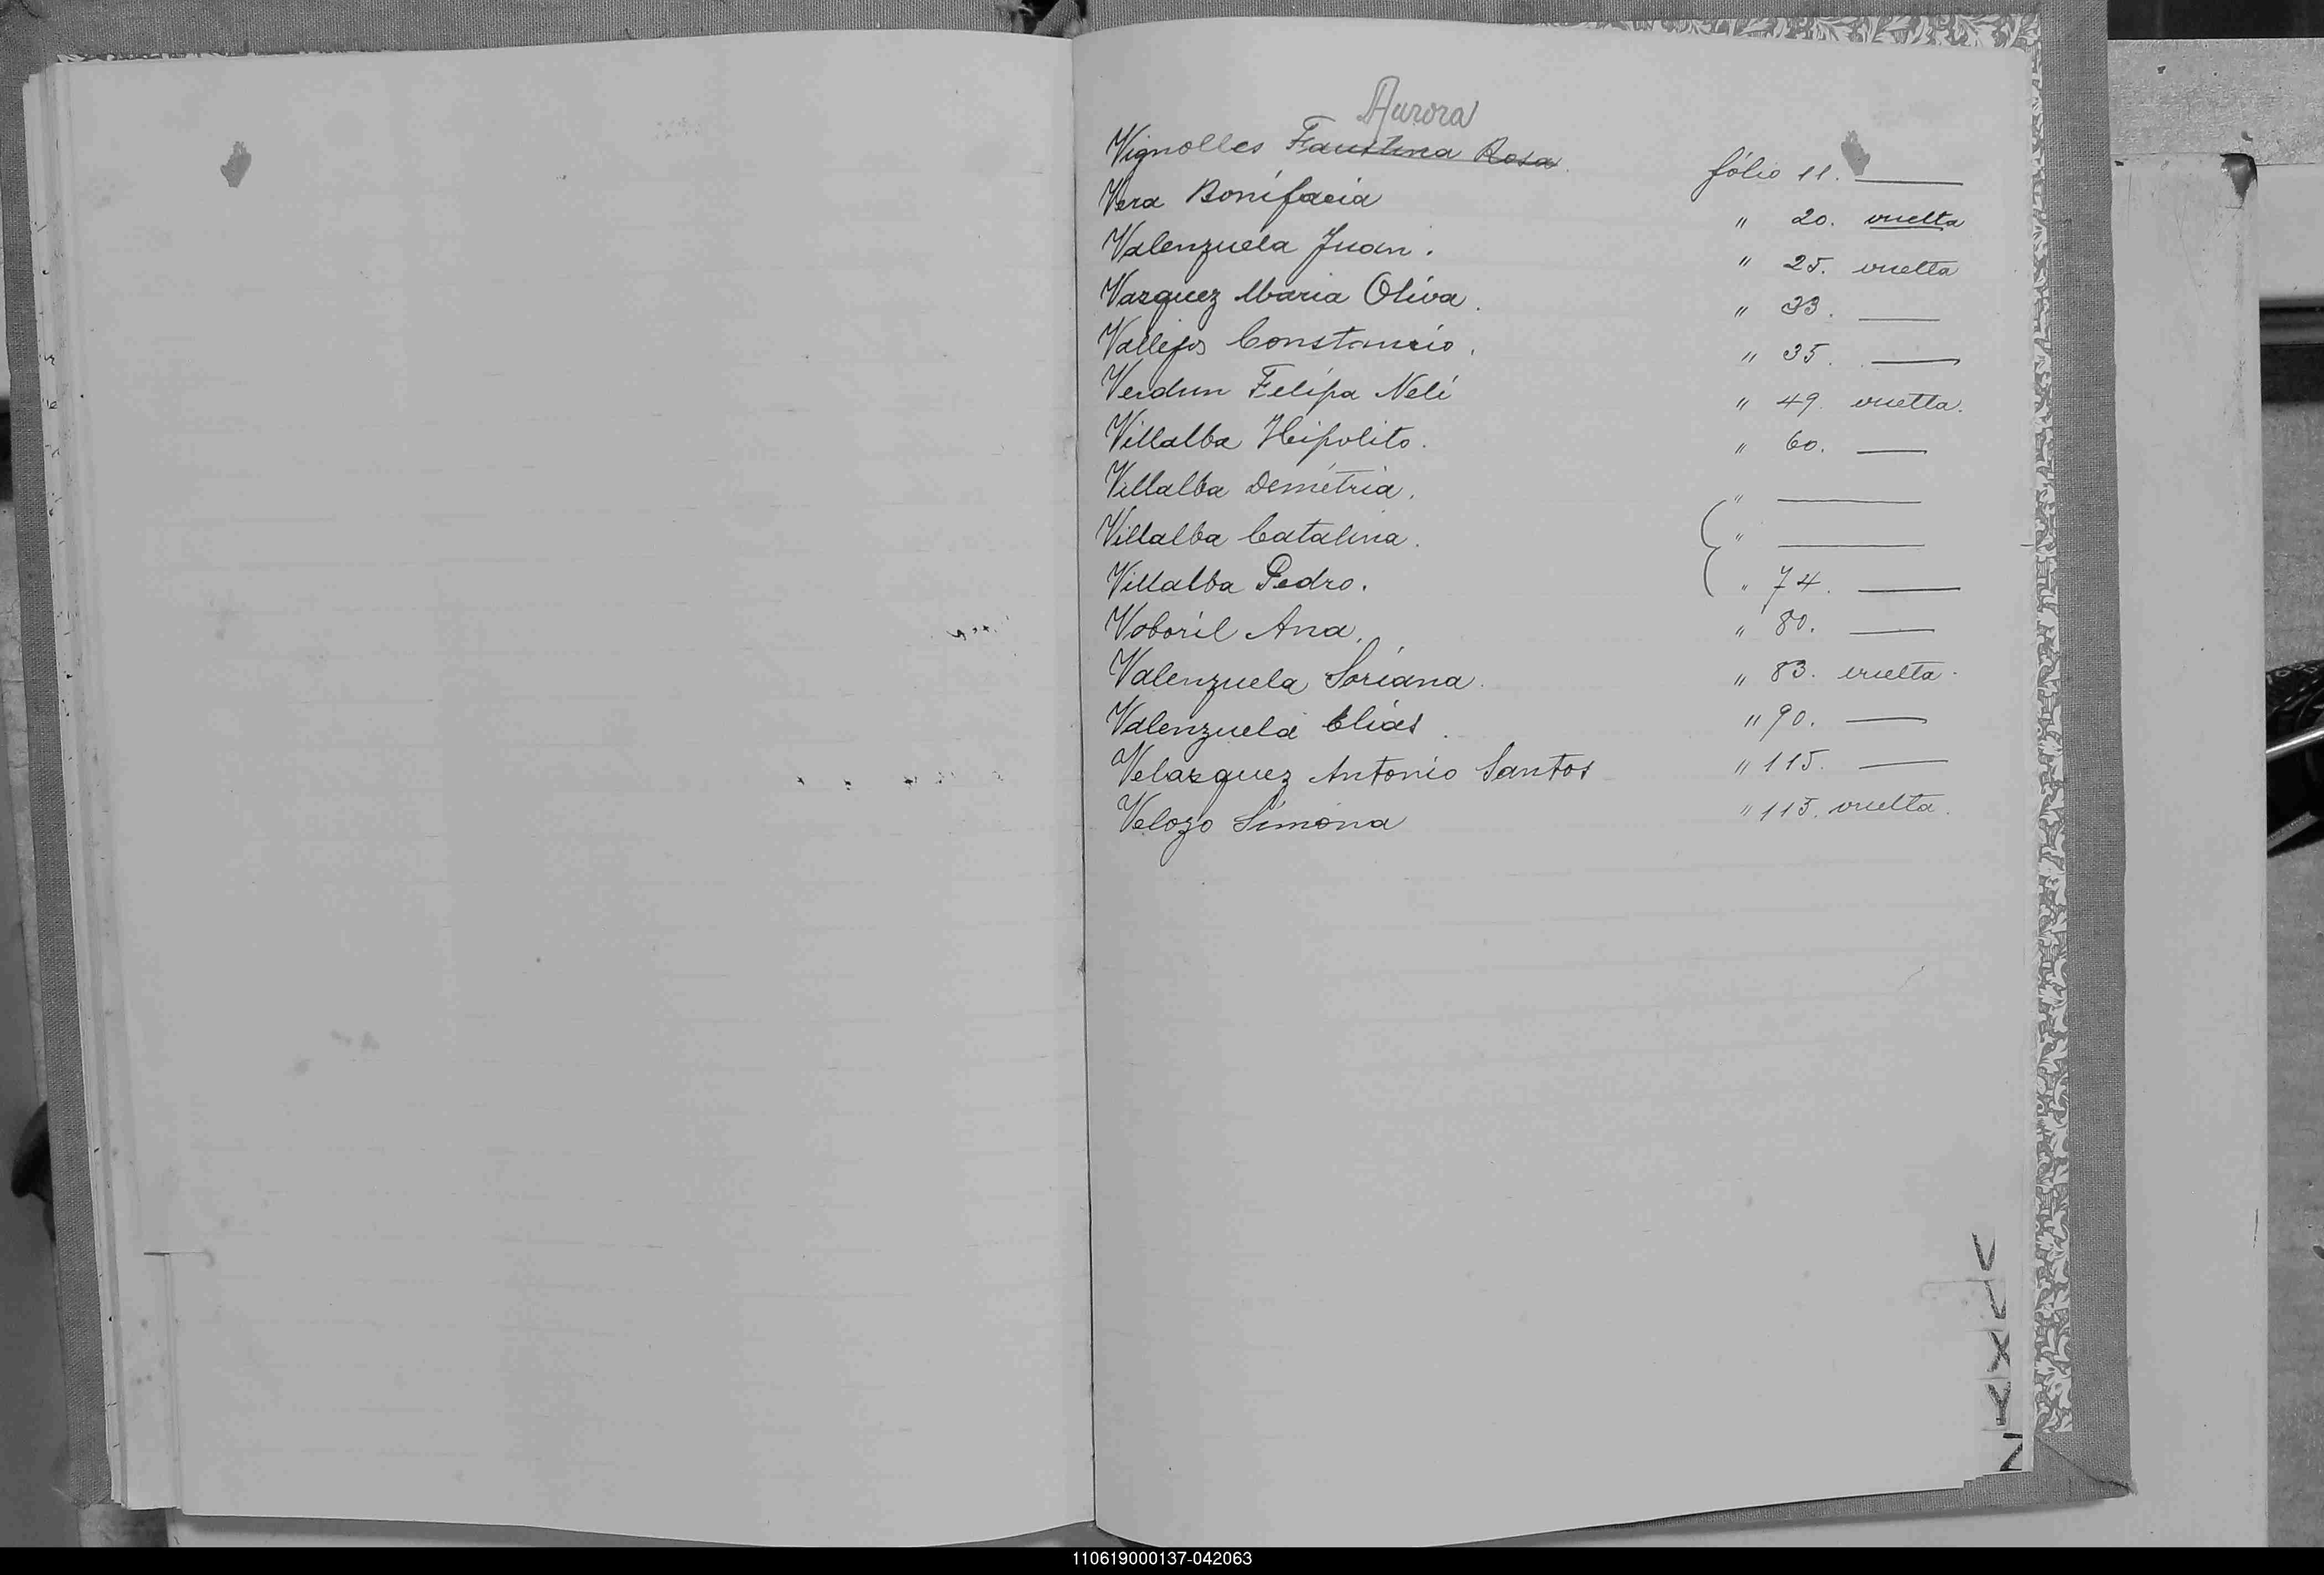 Aurora
Vignolles Faustina Rosa. fólio 11. ———
Vera Bonifacia " 20. vuelta
Valenzuela Juan. " 25. vuelta
Vazquez Maria Oliva. " 33. ———
Vallejos Constancio. " 35. ———
Verdun Felipa Neli " 49. vuelta.
Villalba Heipolito. " 60. ———
Villalba Demetria. " ———
Villalba Catalina. " ———
Villalba Pedro. " 74. ———
Voboril Ana. " 80. ———
Valenzuela Soriana. " 83. vuelta.
Valenzuela Elias. " 90. ———
Velazquez Antonio Santos " 115. ———
Velozo Simona " 115. vuelta.
V
V
X
Y
Z
110619000137-042063